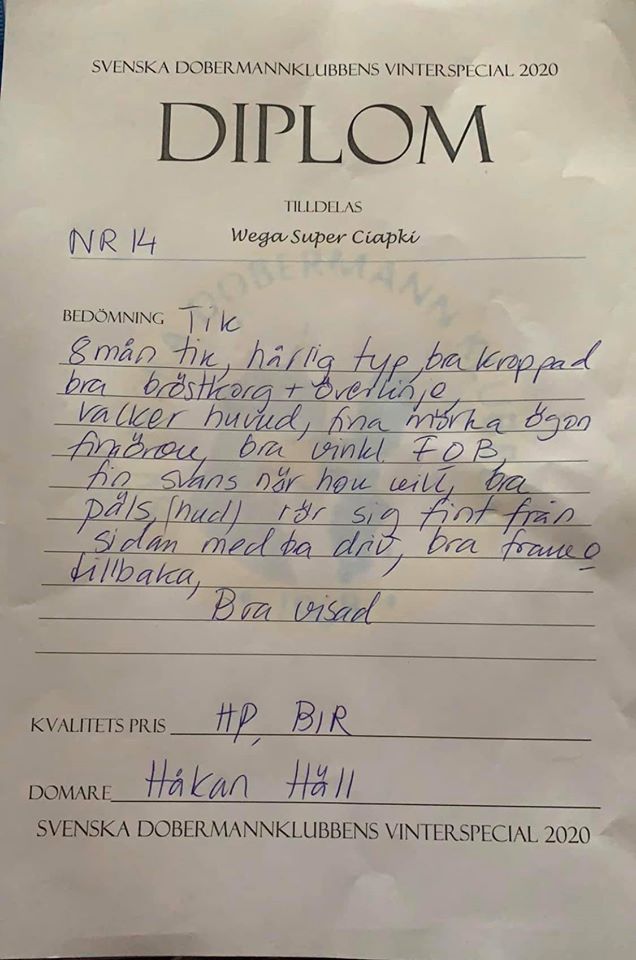 SVENSKA DOBERMANNKLUBBENS VINTERSPECIAL 2020
DIPLOM
TILLDELAS
NR 14 Wega Super Ciapki
BEDÖMNING Tik
8 mån tik, härlig typ, bra kroppad
bra bröstkorg + överlinje,
vacker huvud, fina mörka ögon
bra vinkl FOB,
fin svans när hon vill, bra
päls, (hud) rör sig fint från
sidan med driv, bra fram o
tillbaka,
Bra visad
KVALITETS PRIS HP, BIR
DOMARE Håkan Häll
SVENSKA DOBERMANNKLUBBENS VINTERSPECIAL 2020
DOBERMANN